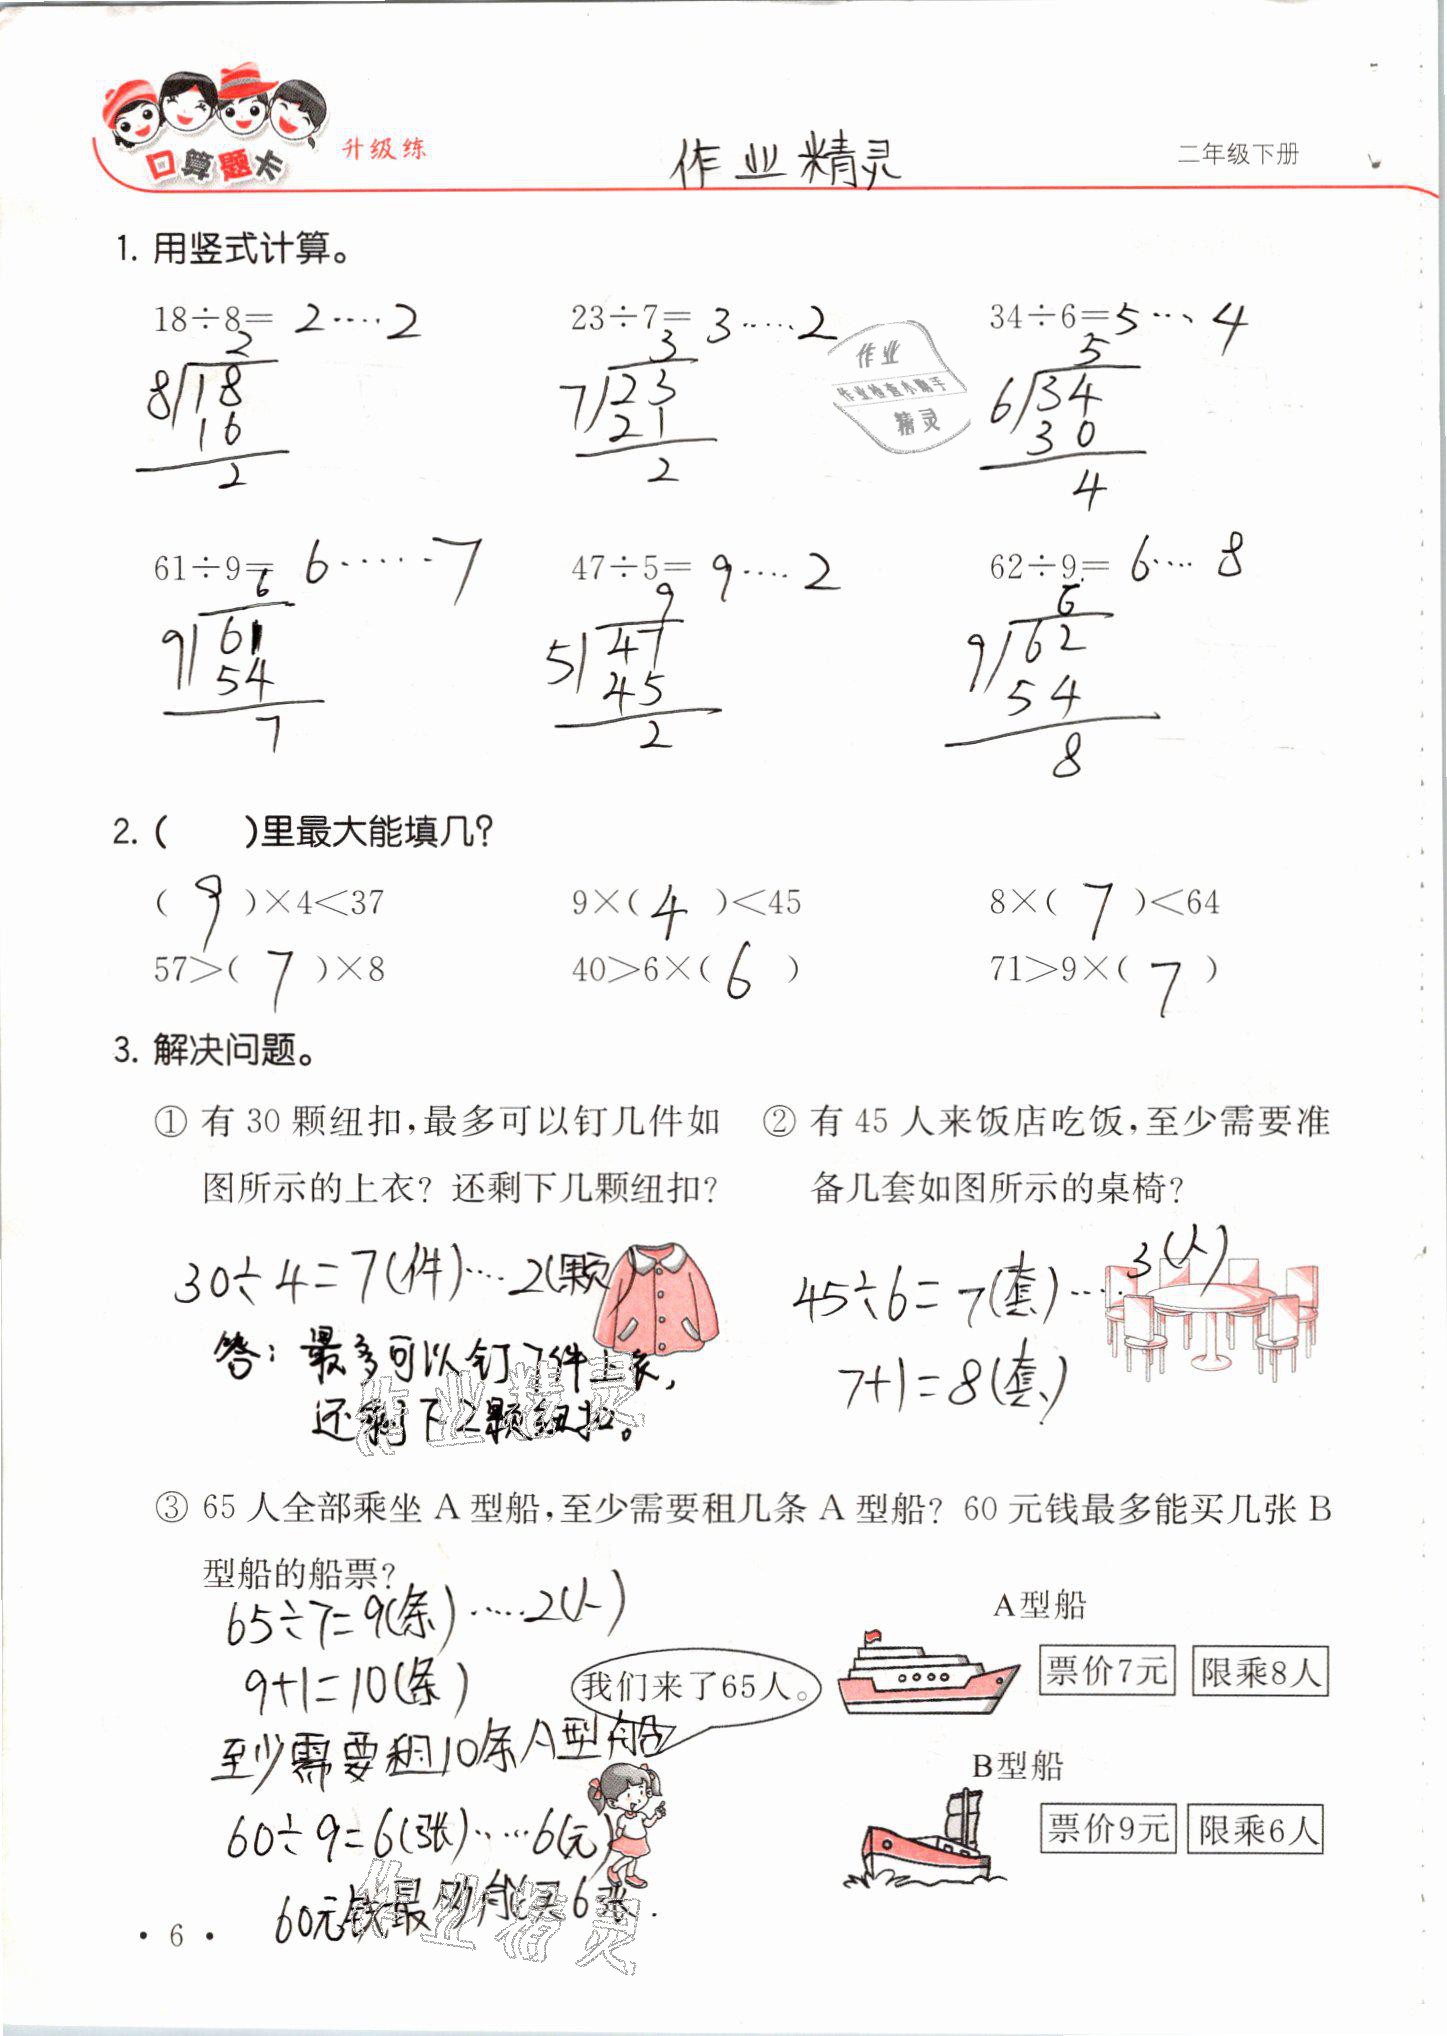 口算题卡 升级练 作业精灵 二年级下册
1. 用竖式计算。
18÷8= 2····2 23÷7= 3·····2 34÷6=5···4
2 3 5
8 18 7 23 6 34
16 21 30
2 2 4
作业
作业检查小助手
精灵
61÷9= 6······7 47÷5= 9····2 62÷9= 6····8
6 9 6
9 61 5 47 9 62
54 45 54
7 2 8
2. ( )里最大能填几?
( 9 )×4<37 9×( 4 )<45 8×( 7 )<64
57>( 7 )×8 40>6×( 6 ) 71>9×( 7 )
3. 解决问题。
① 有 30 颗纽扣,最多可以钉几件如
图所示的上衣? 还剩下几颗纽扣?
30÷4=7(件)····2(颗)
答:最多可以钉7件上衣,
还剩下2颗纽扣。
② 有 45 人来饭店吃饭,至少需要准
备几套如图所示的桌椅?
45÷6=7(套)····3(人)
7+1=8(套)
作业精灵
③ 65 人全部乘坐 A 型船,至少需要租几条 A 型船? 60 元钱最多能买几张 B
型船的船票?
65÷7=9(条)·····2(人)
9+1=10(条)
至少需要租10条A型船
60÷9=6(张)·····6(元)
60元钱最多能买6张.
我们来了65人。
A型船
票价7元 限乘8人
B型船
票价9元 限乘6人
作业精灵
· 6 ·